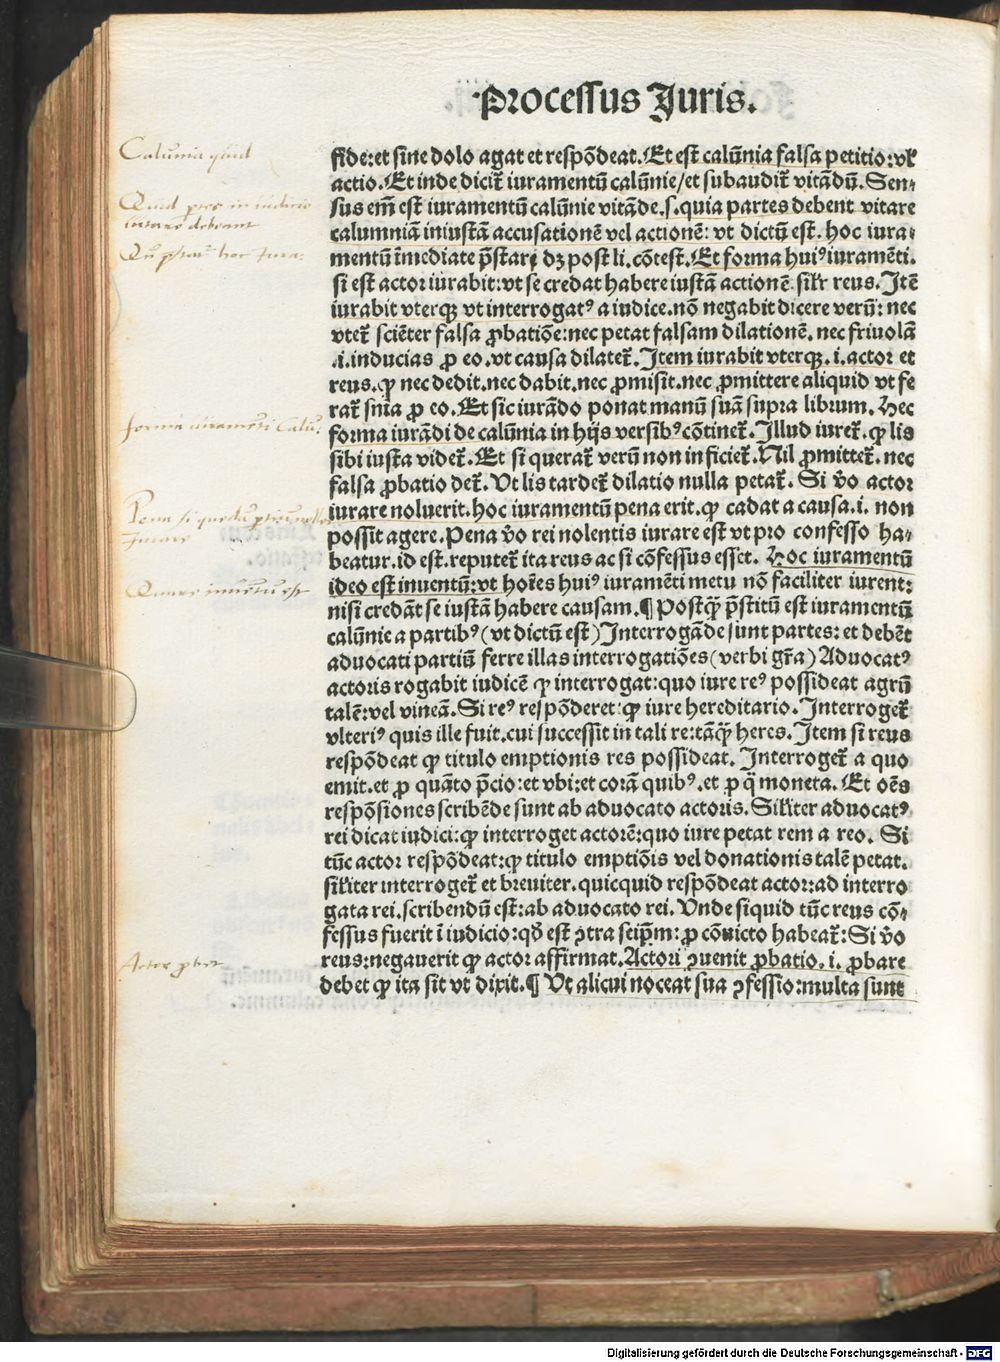 Processus Juris.
Calumnia quid
fide:et sine dolo agat et respōdeat. Et est calūnia falsa petitio:vl'
actio. Et inde dicit̄ iuramentū calūnie/et subaudit̄ vitādū. Sen-
Quid
in iudicio
sus em̄ est iuramentū calūnie vitāde.s.quia partes debent vitare
iurare debeant
calumniā iniustā accusationē vel actionē: vt dictū est. hoc iura-
hoc Iura:
mentū īmediate p̄stari dꝫ post li.cōtest. Et forma huiꝰ iuramēti.
si est actor iurabit:vt se credat habere iustā actionē.sil'r reus. Itē
iurabit vterqꝫ vt interrogatꝰ a iudice.nō negabit dicere verū: nec
vtet̄ sciēter falsa ꝓbatiōe:nec petat falsam dilationē.nec friuolā
.i.inducias ꝓ eo.vt causa dilatet̄. Item iurabit vterqꝫ.i.actor et
reus.ꝙ nec dedit.nec dabit.nec ꝓmisit.nec ꝓmittere aliquid vt fe
rat̄ snīa ꝓ eo. Et sic iurādo ponat manū suā supra librum. Hec
forma iuramēti Calū:
forma iurādi de calūnia in hijs versibꝰ cōtinet̄. Illud iuret̄.ꝙ lis
sibi iusta videt̄. Et si querat̄ verū non inficiet̄. Nil ꝓmittet̄.nec
falsa ꝓbatio det̄. Vt lis tardet̄ dilatio nulla petat̄. Si v̄o actor
Pena si
iurare noluerit.hoc iuramentū pena erit.ꝙ cadat a causa.i. non
Iurare
possit agere. Pena v̄o rei nolentis iurare est vt pro confesso ha-
beatur.id est.reputet̄ ita reus ac si cōfessus esset. Hoc iuramentū
Quare inuentū est
ideo est inuentū:vt hoīes huiꝰ iuramēti metu nō faciliter iurent:
nisi credāt se iustā habere causam.¶ Postq̄ p̄stitū est iuramentū
calūnie a partibꝰ (vt dictū est) Interrogāde sunt partes: et debēt
aduocati partiū ferre illas interrogatiōes (verbi gr̄a) Aduocatꝰ
actoris rogabit iudicē ꝙ interrogat:quo iure reꝰ possideat agrū
talē:vel vineā. Si reꝰ respōderet:ꝙ iure hereditario. Interroget̄
vlteriꝰ quis ille fuit.cui successit in tali re:tāq̄ heres. Item si reus
respōdeat ꝙ titulo emptionis res possideat. Interroget̄ a quo
emit.et ꝓ quāto p̄cio:et vbi:et corā quibꝰ.et ꝓ q̄ moneta. Et oēs
respōsiones scribēde sunt ab aduocato actoris. Sil'iter aduocatꝰ
rei dicat iudici:ꝙ interroget actorē:quo iure petat rem a reo. Si
tūc actor respōdeat:ꝙ titulo emptiōis vel donationis talē petat.
sil'iter interroget̄ et breuiter.quicquid respōdeat actor:ad interro
gata rei.scribendū est:ab aduocato rei. Vnde siquid tūc reus cō-
fessus fuerit ī iudicio:qd̄ est ꝯtra seip̄m: ꝓ cōuicto habeat̄: Si v̄o
Actor
reus:negauerit ꝙ actor affirmat. Actori ꝯuenit ꝓbatio.i. ꝓbare
debet ꝙ ita sit vt dixit.¶ Vt alicui noceat sua ꝯfessio:multa sunt
Digitalisierung gefördert durch die Deutsche Forschungsgemeinschaft - DFG